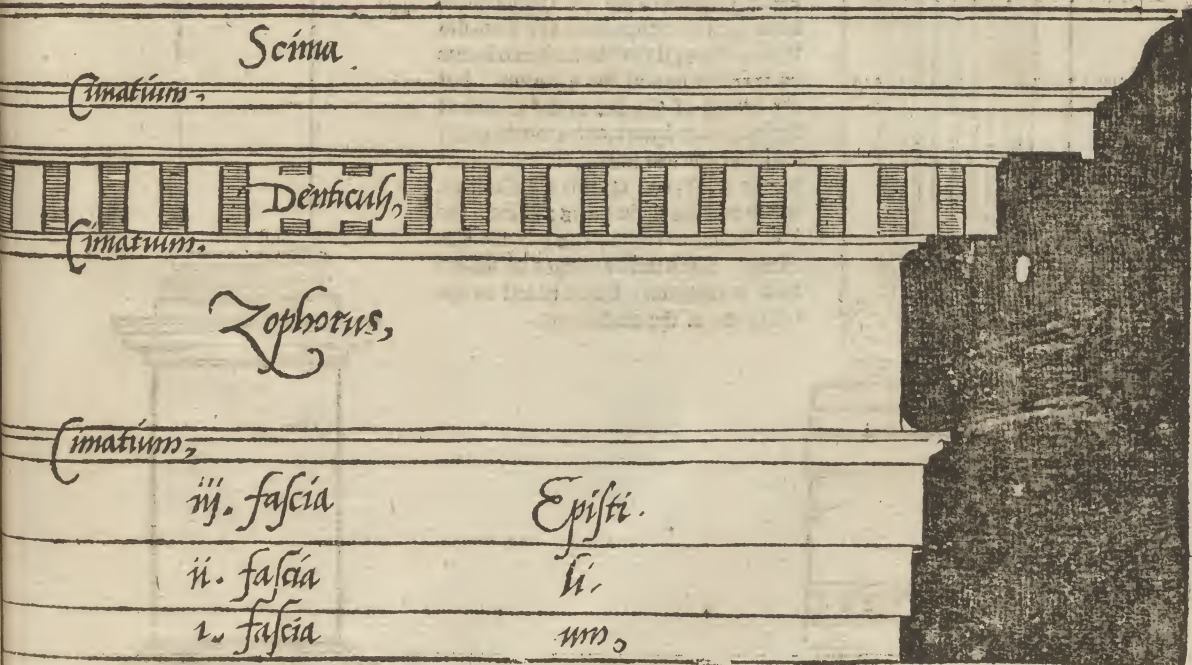 Scima
Cimatium,
Denticuli,
Cimatium.
Zophorus,
Cimatium,
iij. faſcia Epiſti.
ii. faſcia li.
i. faſcia um,